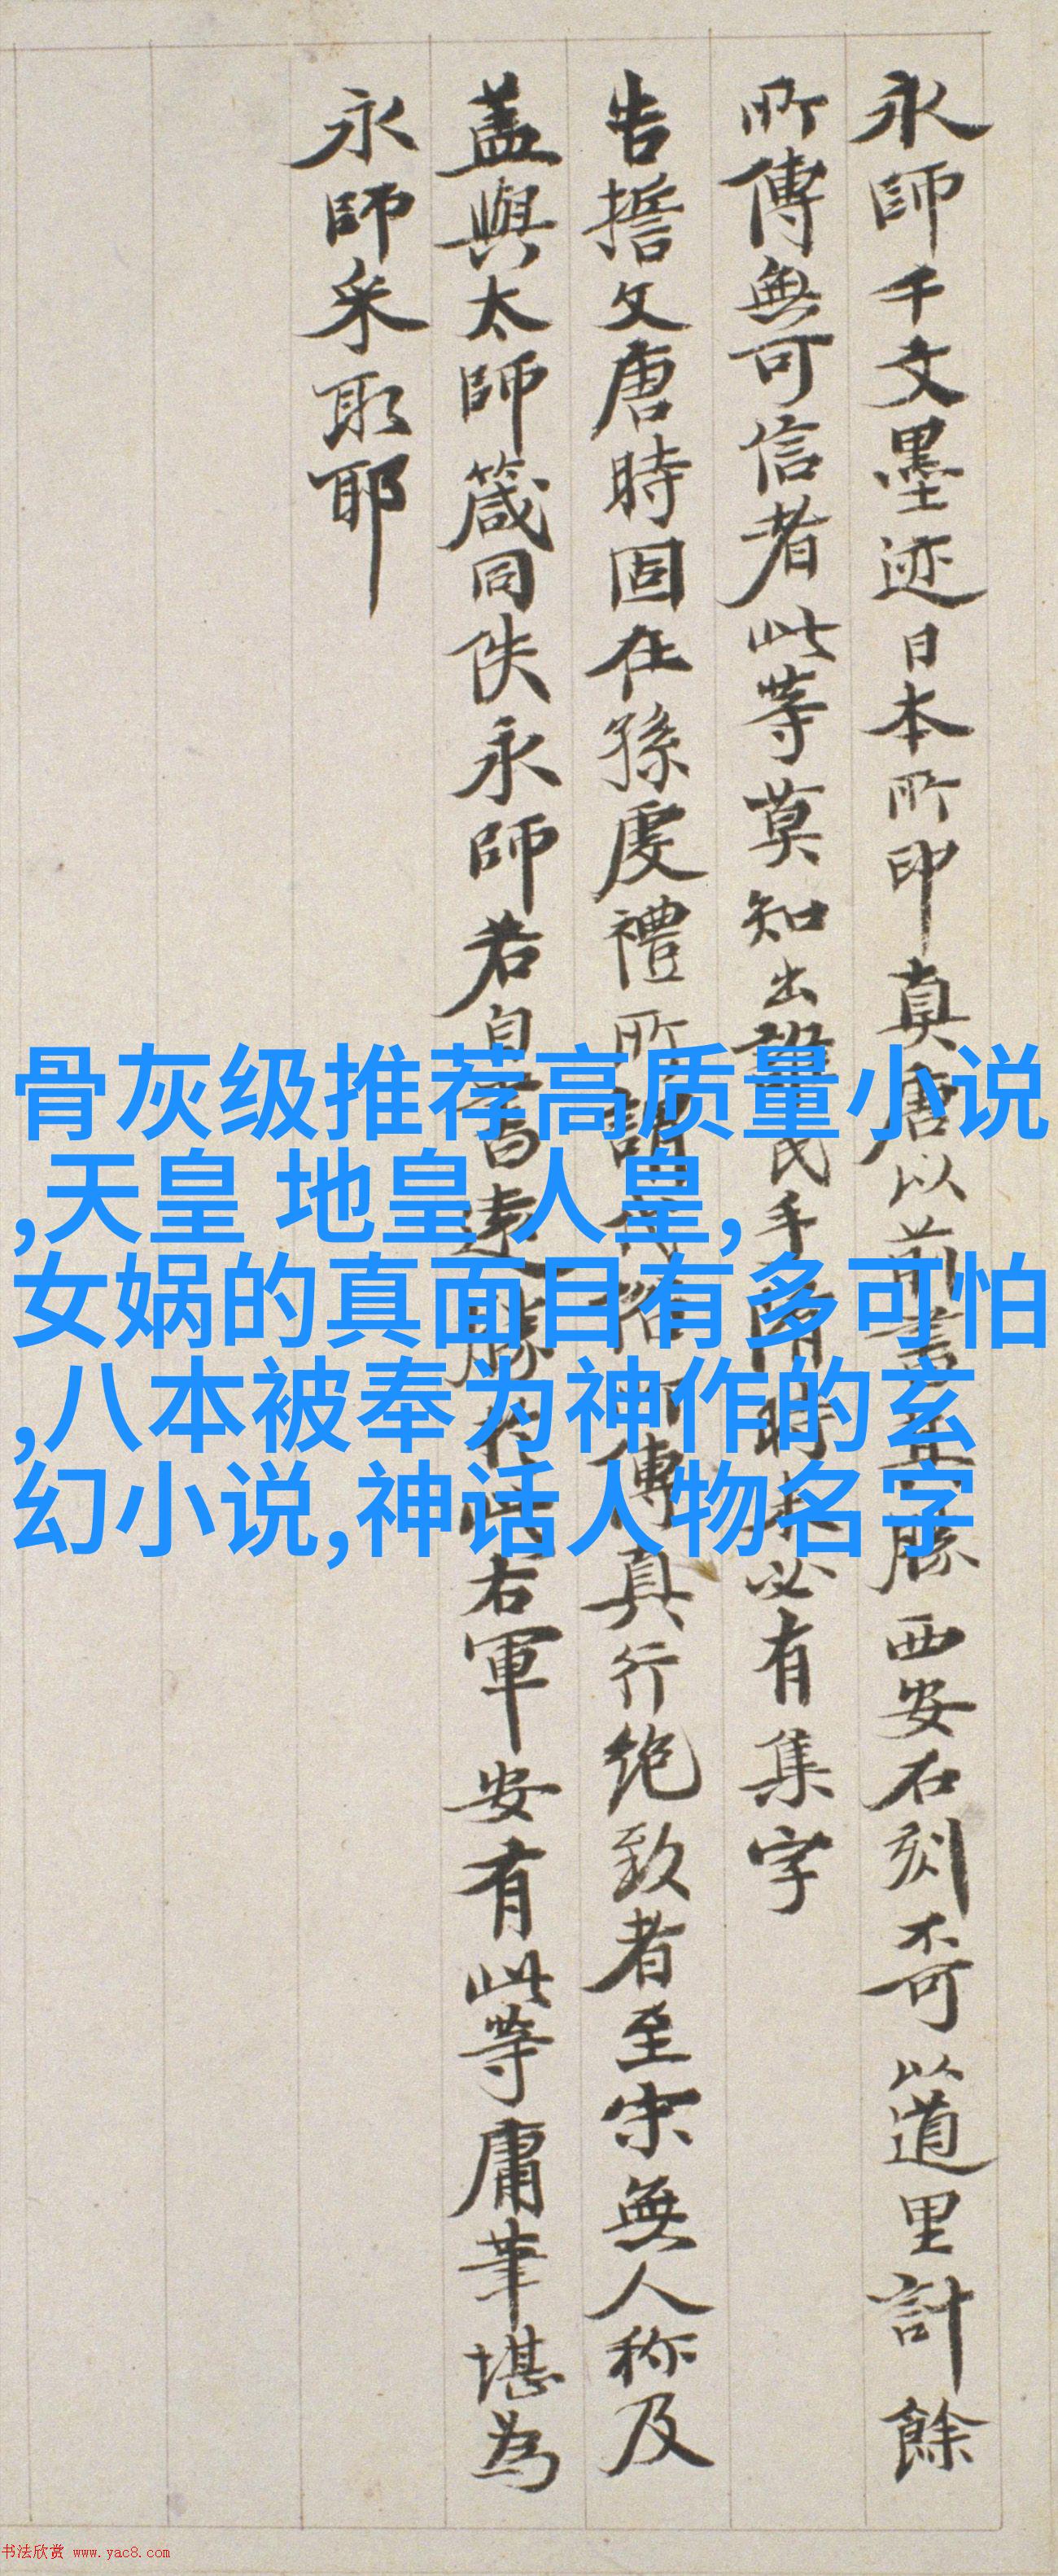 永師千文墨迹日本所印真唐以前書 西安石刻不可以道里計餘
所傳無可信者此等莫知出誰氏手 時 必有集字
告擔文唐時固在孫虔禮所謂代 傳真行絶致者至宋無人称及
盖與太師箴同佚永師若自書遠勝 右軍安有此等庸筆堪為
永師采取耶
骨灰级推荐高质量小说
,天皇 地皇 人皇,
女娲的真面目有多可怕
,八本被奉为神作的玄
幻小说,神话人物名字
书法欣赏 www.yac8.com